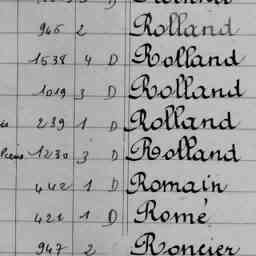 946 2 Rolland
1538 4 D Rolland
1019 3 D Rolland
239 1 D Rolland
1230 3 D Rolland
442 1 D Romain
421 1 D Romé
947 2 Roncier